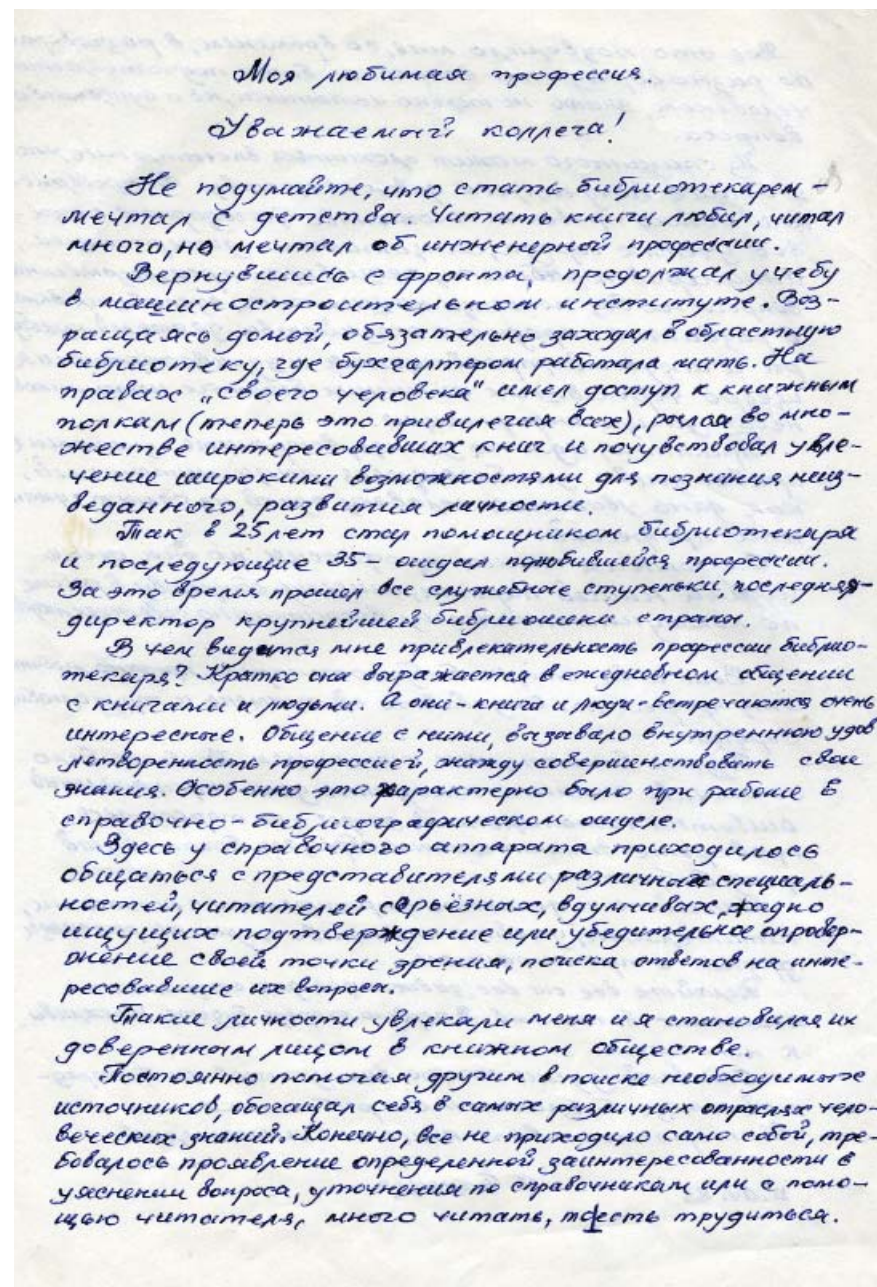 Моя любимая профессия.
Уважаемый коллега!
Не подумайте, что стать библиотекарем –
мечтал с детства. Читать книги любил, читал
много, но мечтал об инженерной профессии.
Вернувшись с фронта, продолжал учебу
в машиностроительном институте. Воз-
ращаясь домой, обязательно заходил в областную
библиотеку, где бухгалтером работала мать. На
правах „своего человека“ имел доступ к книжным
полкам (теперь это привилегия всех), рылся во мно-
жестве интересовавших книг и почувствовал увле-
чение широкими возможностями для познания неиз-
веданного, развития личности.
Так в 25 лет стал помощником библиотекаря
и последующие 35 – отдал полюбившейся профессии.
За это время прошел все служебные ступеньки, последняя –
директор крупнейшей библиотеки страны.
В чем видятся мне привлекательность профессии библио-
текаря? Кратко она выражается в ежедневном общении
с книгами и людьми. А они – книга и люди – встречаются очень
интересные. Общение с ними, вызывало внутреннюю удов
летворенность профессией, жажду совершенствовать свои
знания. Особенно это характерно было при работе в
справочно-библиографическом отделе.
Здесь у справочного аппарата приходилось
общаться с представителями различных специаль-
ностей, читателей серьёзных, вдумчивых, жадно
ищущих подтверждение или убедительное опровер-
жение своей точки зрения, поиска ответов на инте-
ресовавшие их вопросы.
Такие личности увлекали меня и я становился их
доверенным лицом в книжном обществе.
Постоянно помогая другим в поиске необходимых
источников, обогащал себя в самых различных отраслях чело-
веческих знаний. Конечно, все не приходило само собой, тре-
бовалось проявление определенной заинтересованности в
уяснении вопроса, уточнения по справочникам или с помо-
щью читателя, много читать, то есть трудиться.